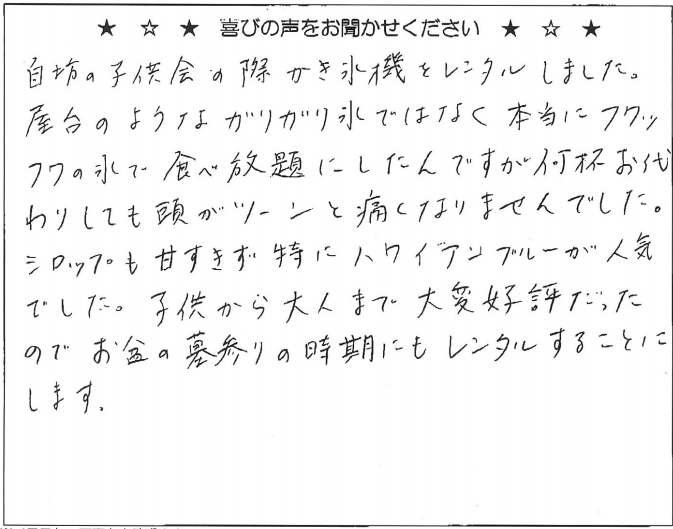 ★ ☆ ★ 喜びの声をお聞かせください ★ ☆ ★
自坊の子供会の際かき氷機をレンタルしました。
屋台のようなガリガリ氷ではなく本当にフワッ
フワの氷で食べ放題にしたんですが何杯お代
わりしても頭がツーンと痛くなりませんでした。
シロップも甘すぎず特にハワイアンブルーが人気
でした。子供から大人まで大変好評だった
のでお盆の墓参りの時期にもレンタルすることに
します。